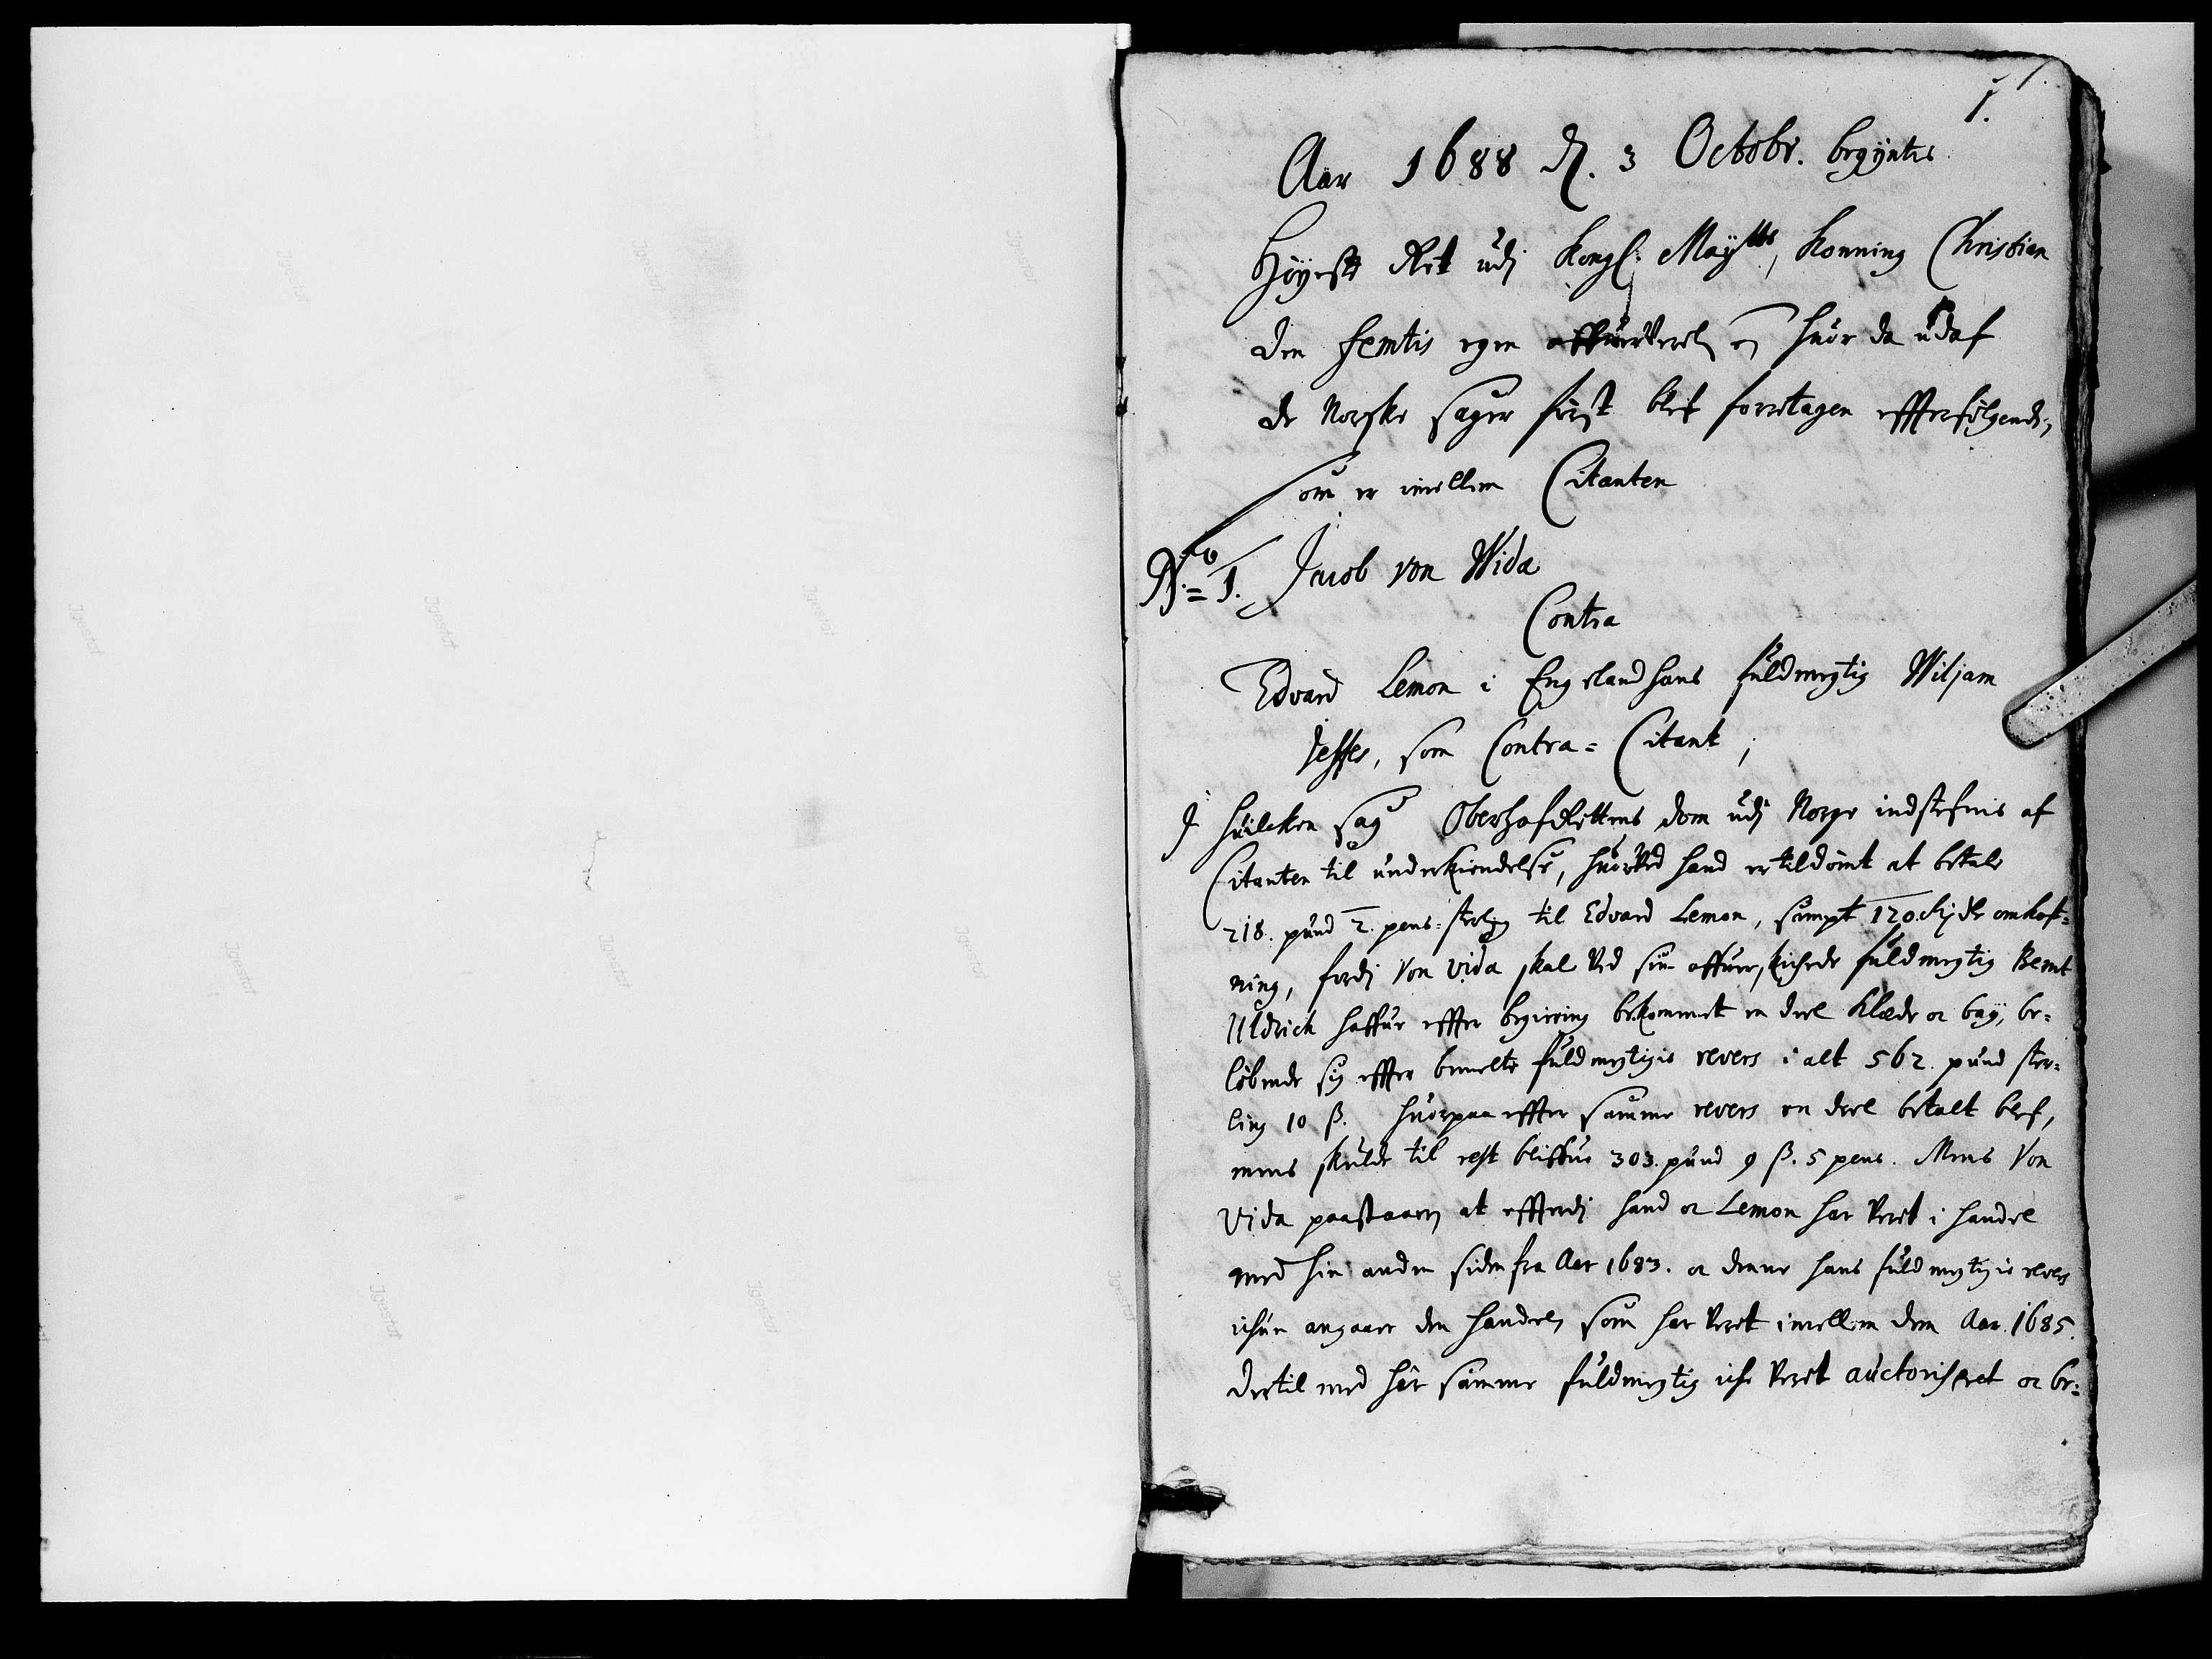 1.
Aar 1688 d. 3 Octobr. begÿntes
Høyeste Ret udj Kongl: Maÿtts, Konning Christian
den femtis egen offuerverelsen huor da udaf
de Norske sager først blef foretagen effterfølgende,
som er imellem Citanten
No= 1. Jacob von Wida
Contra
Edvard Lemon i Engeland hans fuldmegtig Wiljam
Jesses, som Contra=Citant;
J huilcken sag OberhofRettens dom udj Norge indstefnis af
Citanten til underkiendelse, huorved hand er tildømt at betale
218. pund 2. pens: sterlg til Edvard Lemon, sampt 120 Rixdlr omkost=
ning, fordj Von Vida skal ved sin offuerskichede fuldmegtig Bernt
Uldrich haffue effter begiering bekommet en deel Klæde oc baÿ, be=
løbende sig effter bemelte fuldmegtigis revers i alt 562. pund ster=
ling 10 ß. huorpaa effter samme revers en deel betalt blef,
mens skulde til rest bliffue 303. pund 9 ß. 5 pens. Mens Von
Vida paastaaer, at effterdj hand oc Lemon har veret i handel
med hin anden siden fra Aar 1683. oc denne hans fuldmegtigis revers
ichun angaaer den handel, som har veret imellem dem Aar 1685.
dertil med har samme fuldmegtig iche veret auctoriseret oc be=